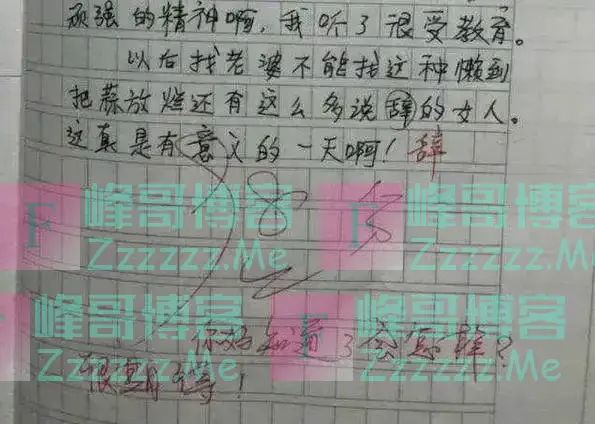 顽强的精神啊，我听了很受教育。
以后找老婆不能找这种懒到
把蒜放烂还有这么多说辞的女人。
这真是有意义的一天啊！辞
峰哥博客 峰哥博客
F Zzzzzz.Me F Zzzzzz.Me
峰哥博客 峰哥博客
Zzzzzz.Me F Zzzzzz.Me
你妈知道了会怎样？